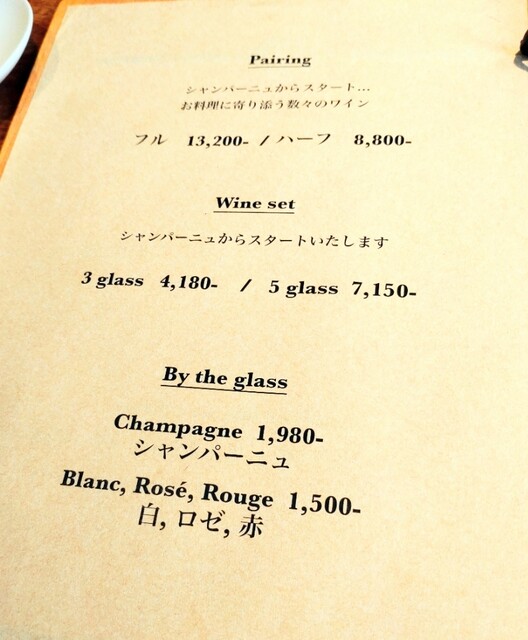 Pairing
シャンパーニュからスタート...
お料理に寄り添う数々のワイン
フル 13,200- / ハーフ 8,800-
Wine set
シャンパーニュからスタートいたします
3 glass 4,180- / 5 glass 7,150-
By the glass
Champagne 1,980-
シャンパーニュ
Blanc, Rosé, Rouge 1,500-
白, ロゼ, 赤